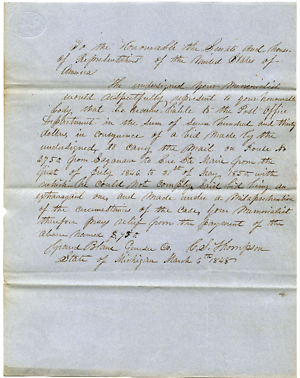 To the Honourable the Senate and House
of Representatives of the United States of
America
The undersigned your Memorialist
would respectfully represent to your honourable
body that he became liable to the Post Office
Department in the sum of seven hundred and thirty
dollars in consequence of a bid made by the
undersigned to carry the Mail on Route No
3750 from to Sue Ste Marie from the
first of July 1846 to of May, 1850 with
which he could not comply said bid being so
extravagant one, and made under a Misapprehension
of the circumstances of the case, your Memorialist
therefore prays relief from the payment of the
above named $730
Grand Blanc Genesee Co. C. S. Thompson
State of Michigan March 6th 1848